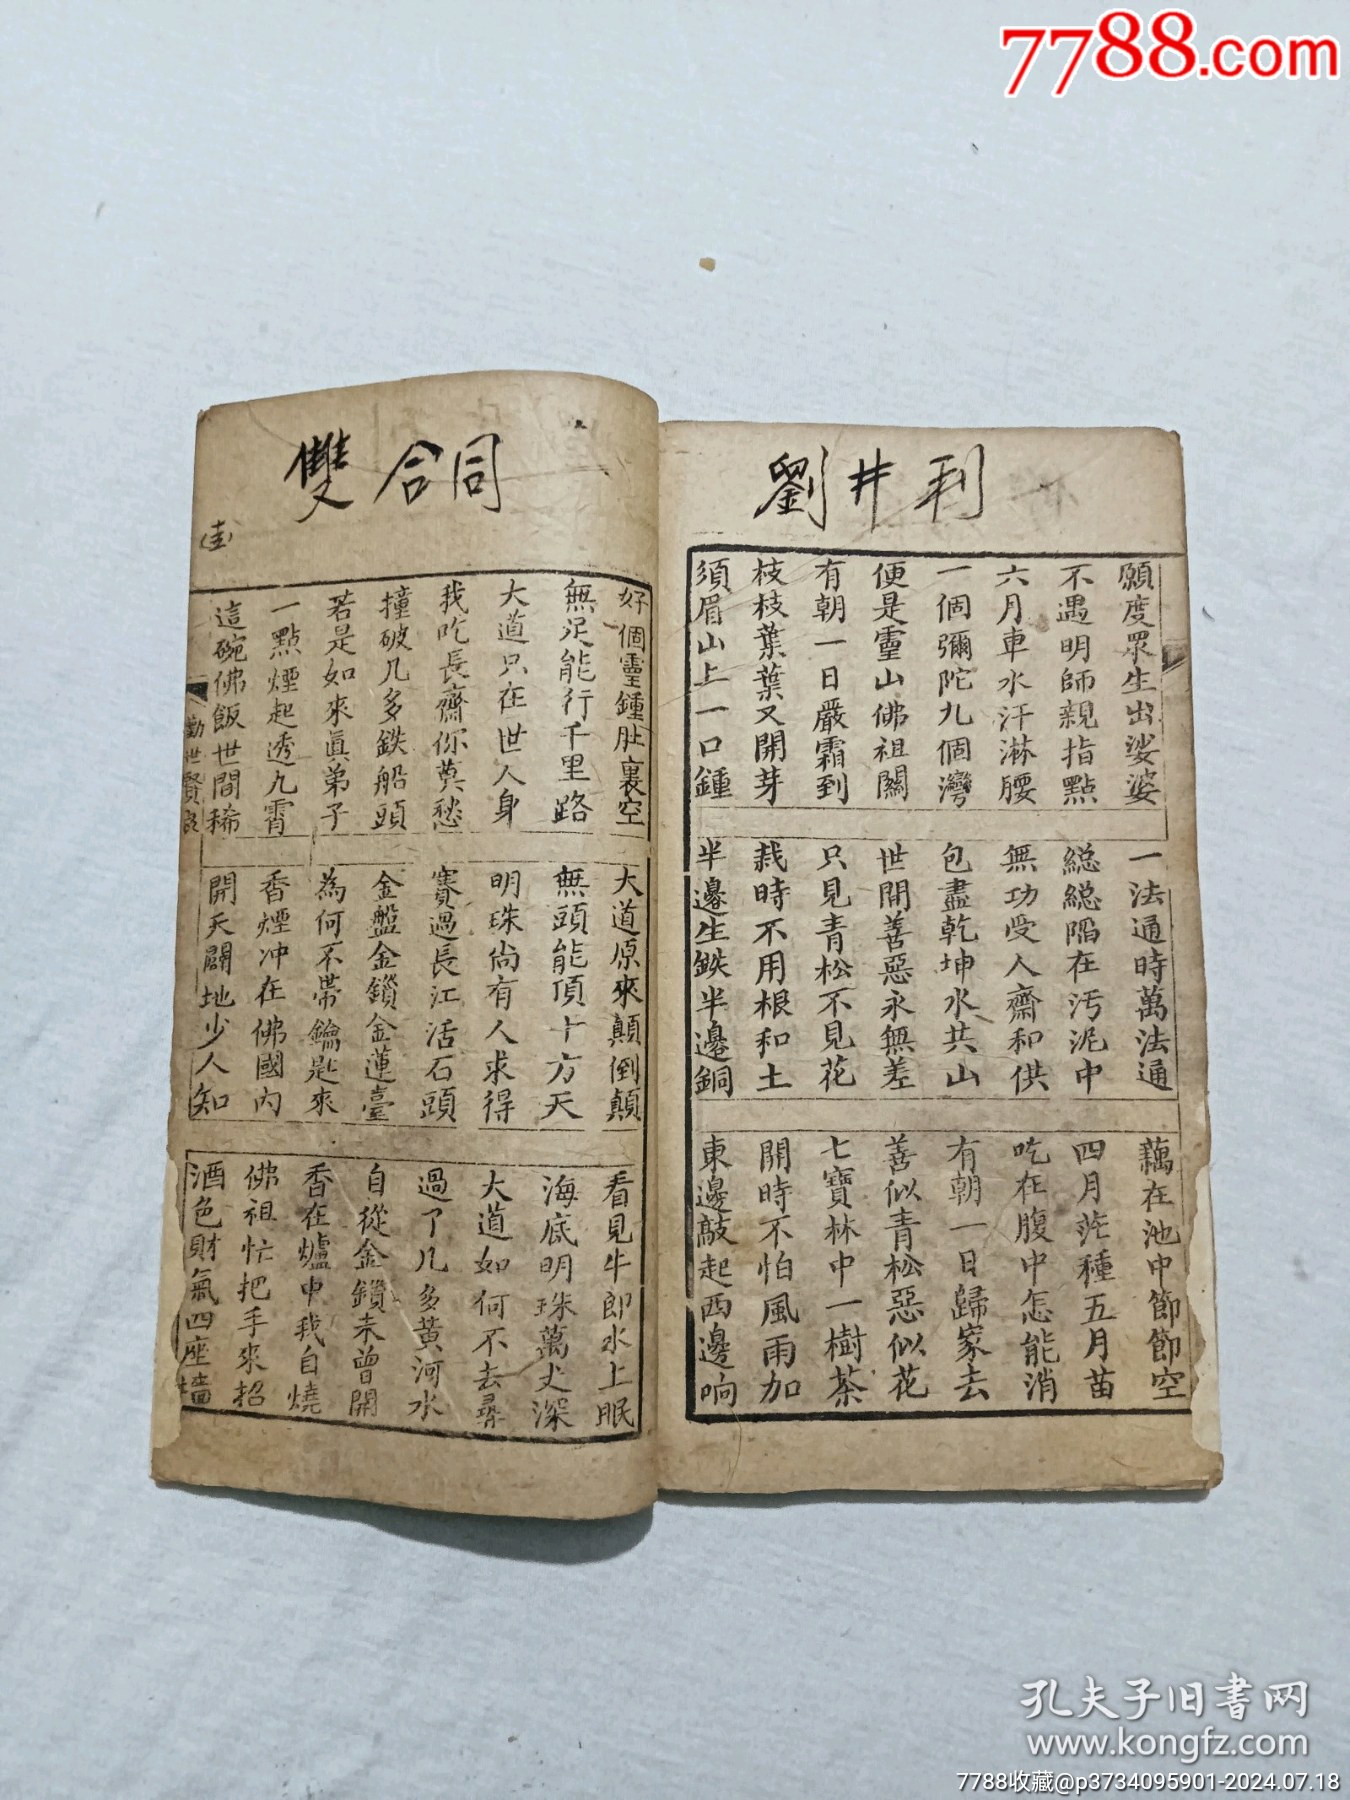 劉井利
願度眾生出娑婆 一法通時萬法通 藕在池中節節空
不遇明師親指點 総総陷在污泥中 四月茫種五月苗
六月車水汗淋腰 無功受人齋和供 吃在腹中怎能消
一個彌陀九個灣 包盡乾坤水共山 有朝一日歸家去
便是靈山佛祖關 世間善惡永無差 善似青松惡似花
有朝一日嚴霜到 只見青松不見花 七寶林中一樹茶
枝枝葉葉又開芽 栽時不用根和土 開時不怕風雨加
須眉山上一口鍾 半邊生鉄半邊銅 東邊敲起西邊响
雙合同
好個靈鍾肚裏空 大道原來顛倒顛 看見牛郎水上眠
無足能行千里路 無頭能頂十方天 海底明珠萬丈深
大道只在世人身 明珠尚有人求得 大道如何不去尋
我吃長齋你莫愁 賽過長江活石頭 過了几多黃河水
撞破几多鉄船頭 金盤金鎖金蓮臺 自從金鎖未曾開
若是如來眞弟子 為何不帶鑰匙來 香在爐中我自燒
一點煙起透九霄 香煙冲在佛國內 佛祖忙把手來招
這碗佛飯世間稀 開天闢地少人知 酒色財氣四座墻
勸世賢良
7788.com
孔夫子旧書网
www.kongfz.com
7788收藏@p3734095901-2024.07.18